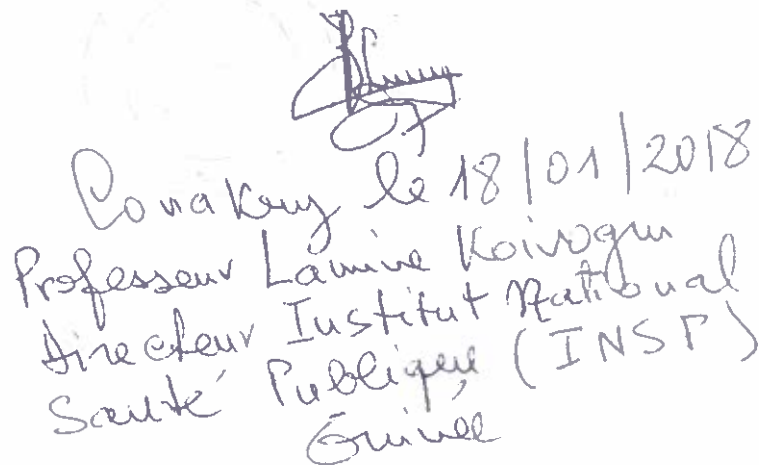 Conakry le 18/01/2018
Professeur Lamine Koivogui
Directeur Institut National
Santé Publique (INSP)
Guinée